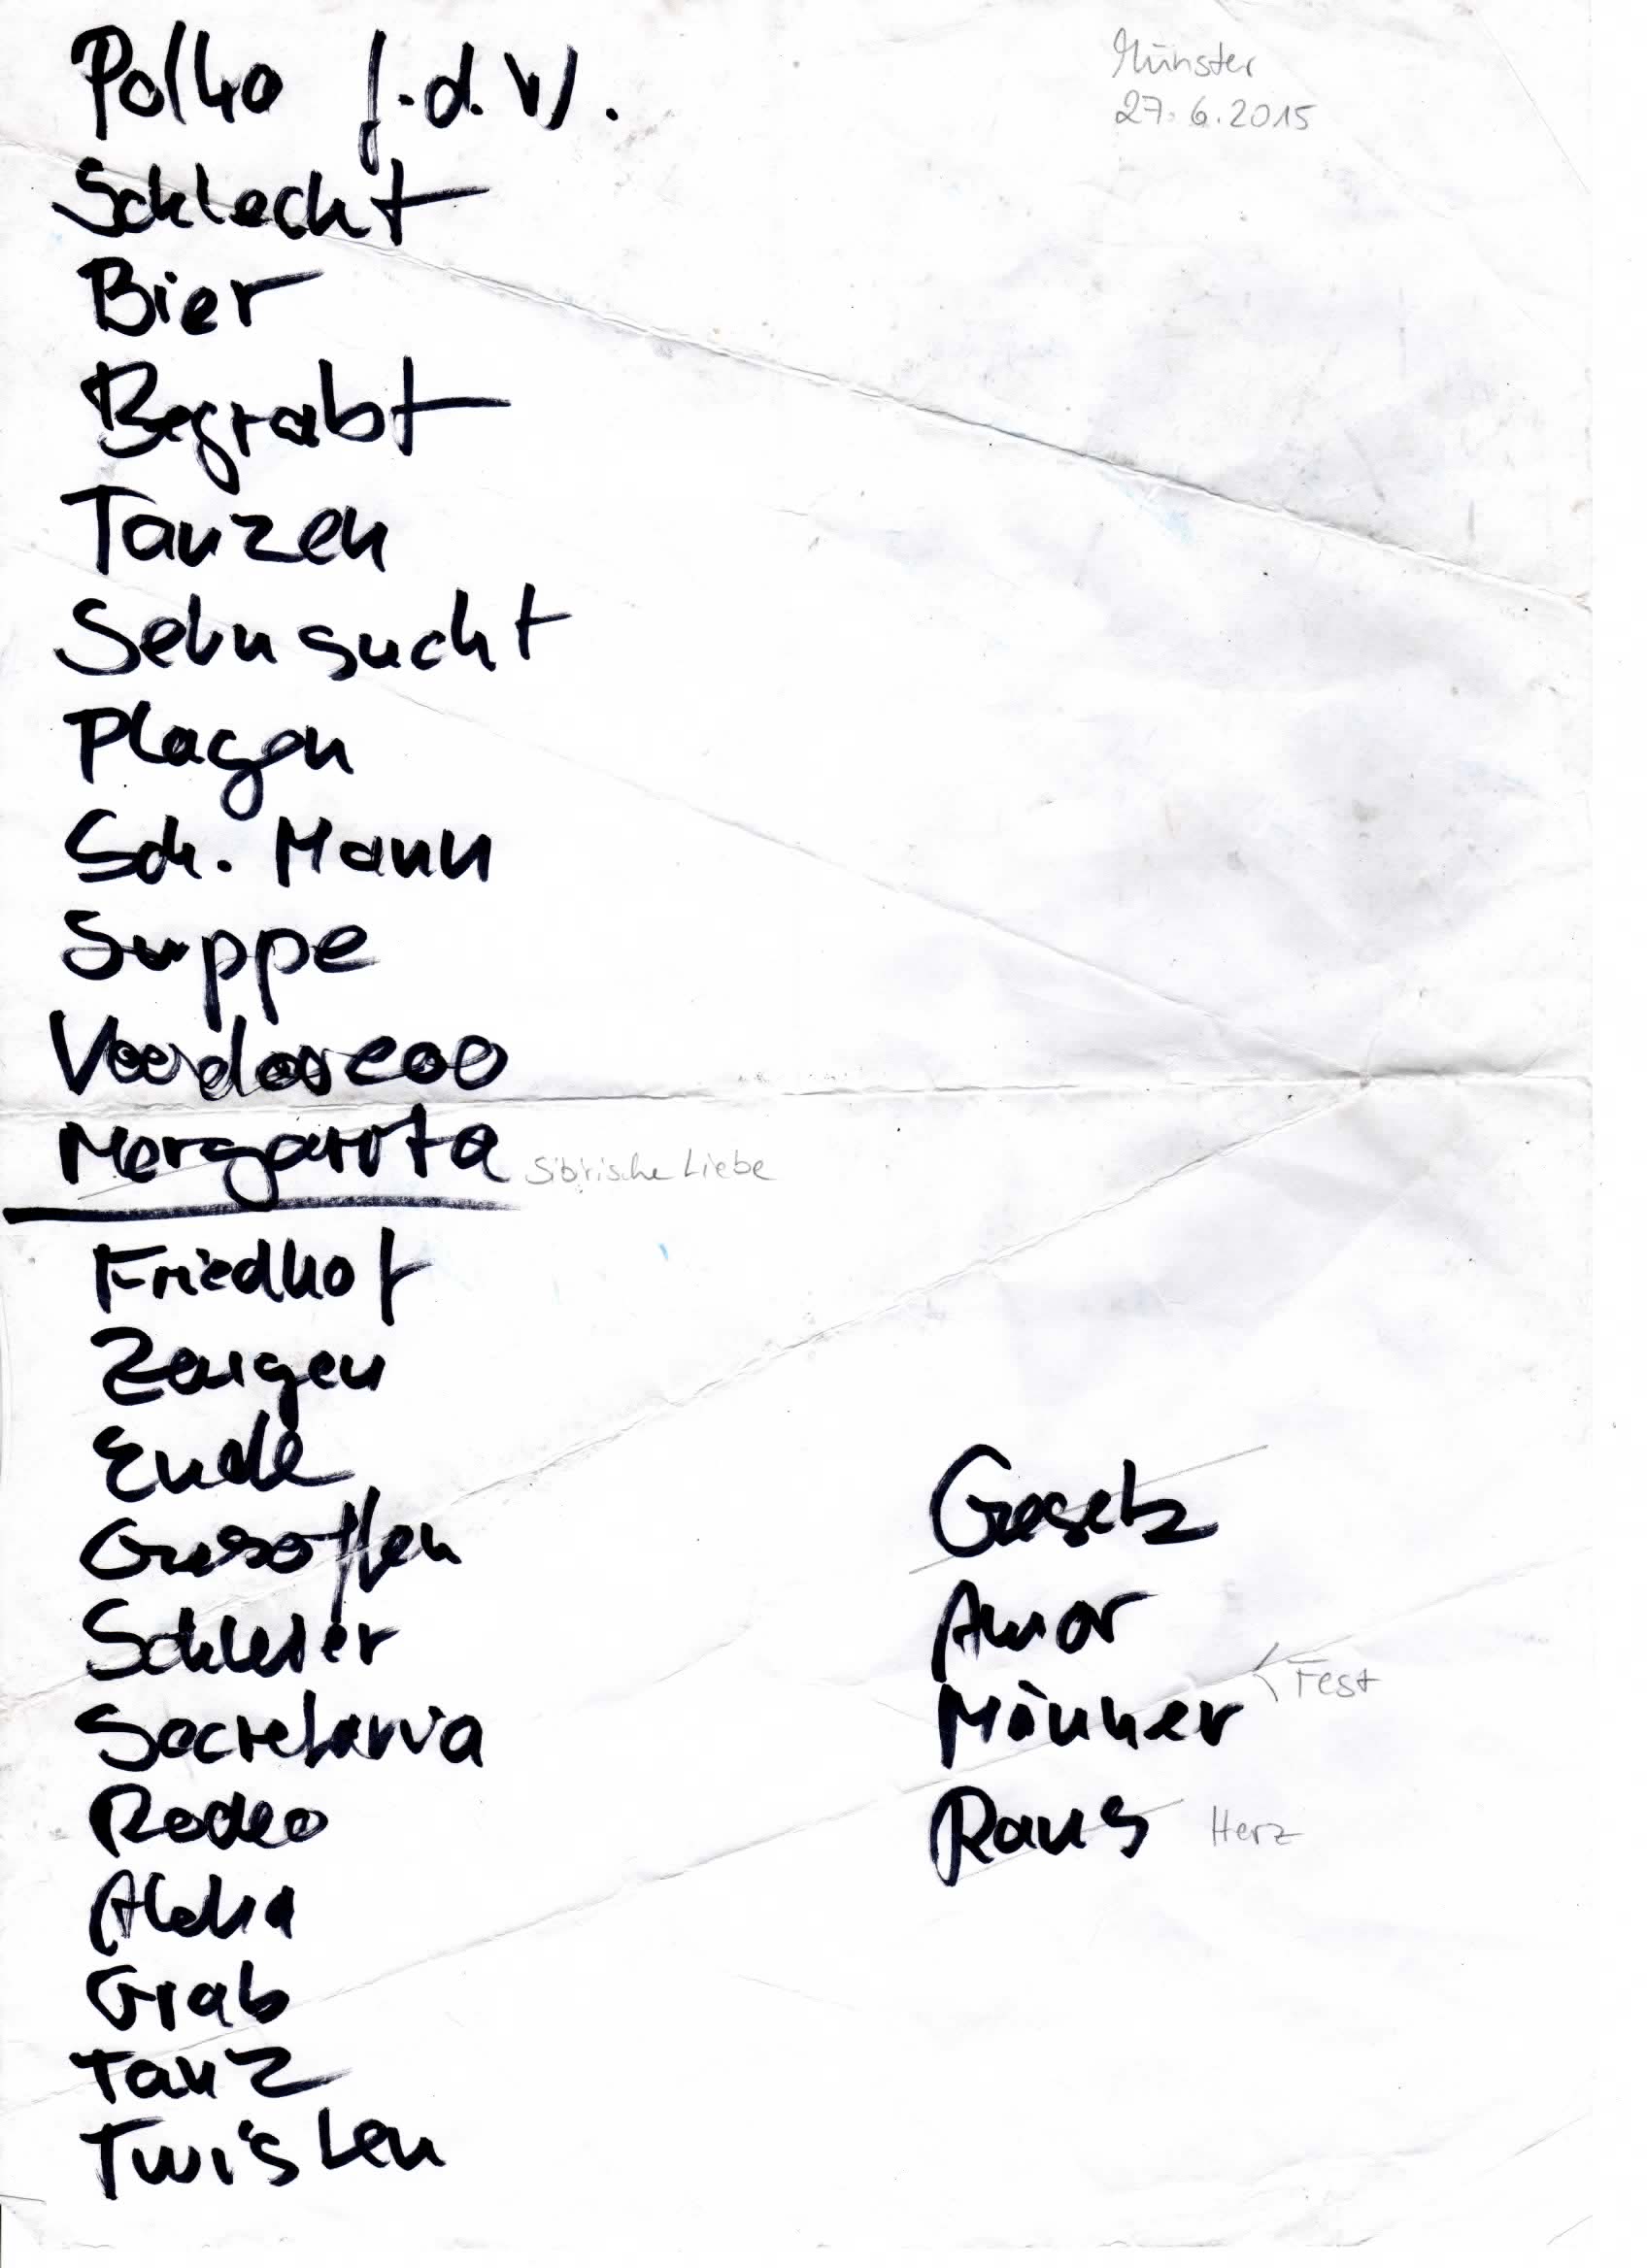 Polko f.d.W.
Münster
27.6.2015
Schlecht
Bier
Begrabt
Tanzen
Sehnsucht
Plagen
Sch. Mann
Suppe
Margarita Sibirische Liebe
Friedhof
Zeugen
Ende
Gesoffen
Gesetz
Schleier
Amor
Fest
Secretaria
Männer
Rodeo
Raus Herz
Aloha
Grab
Tanz
Twisten